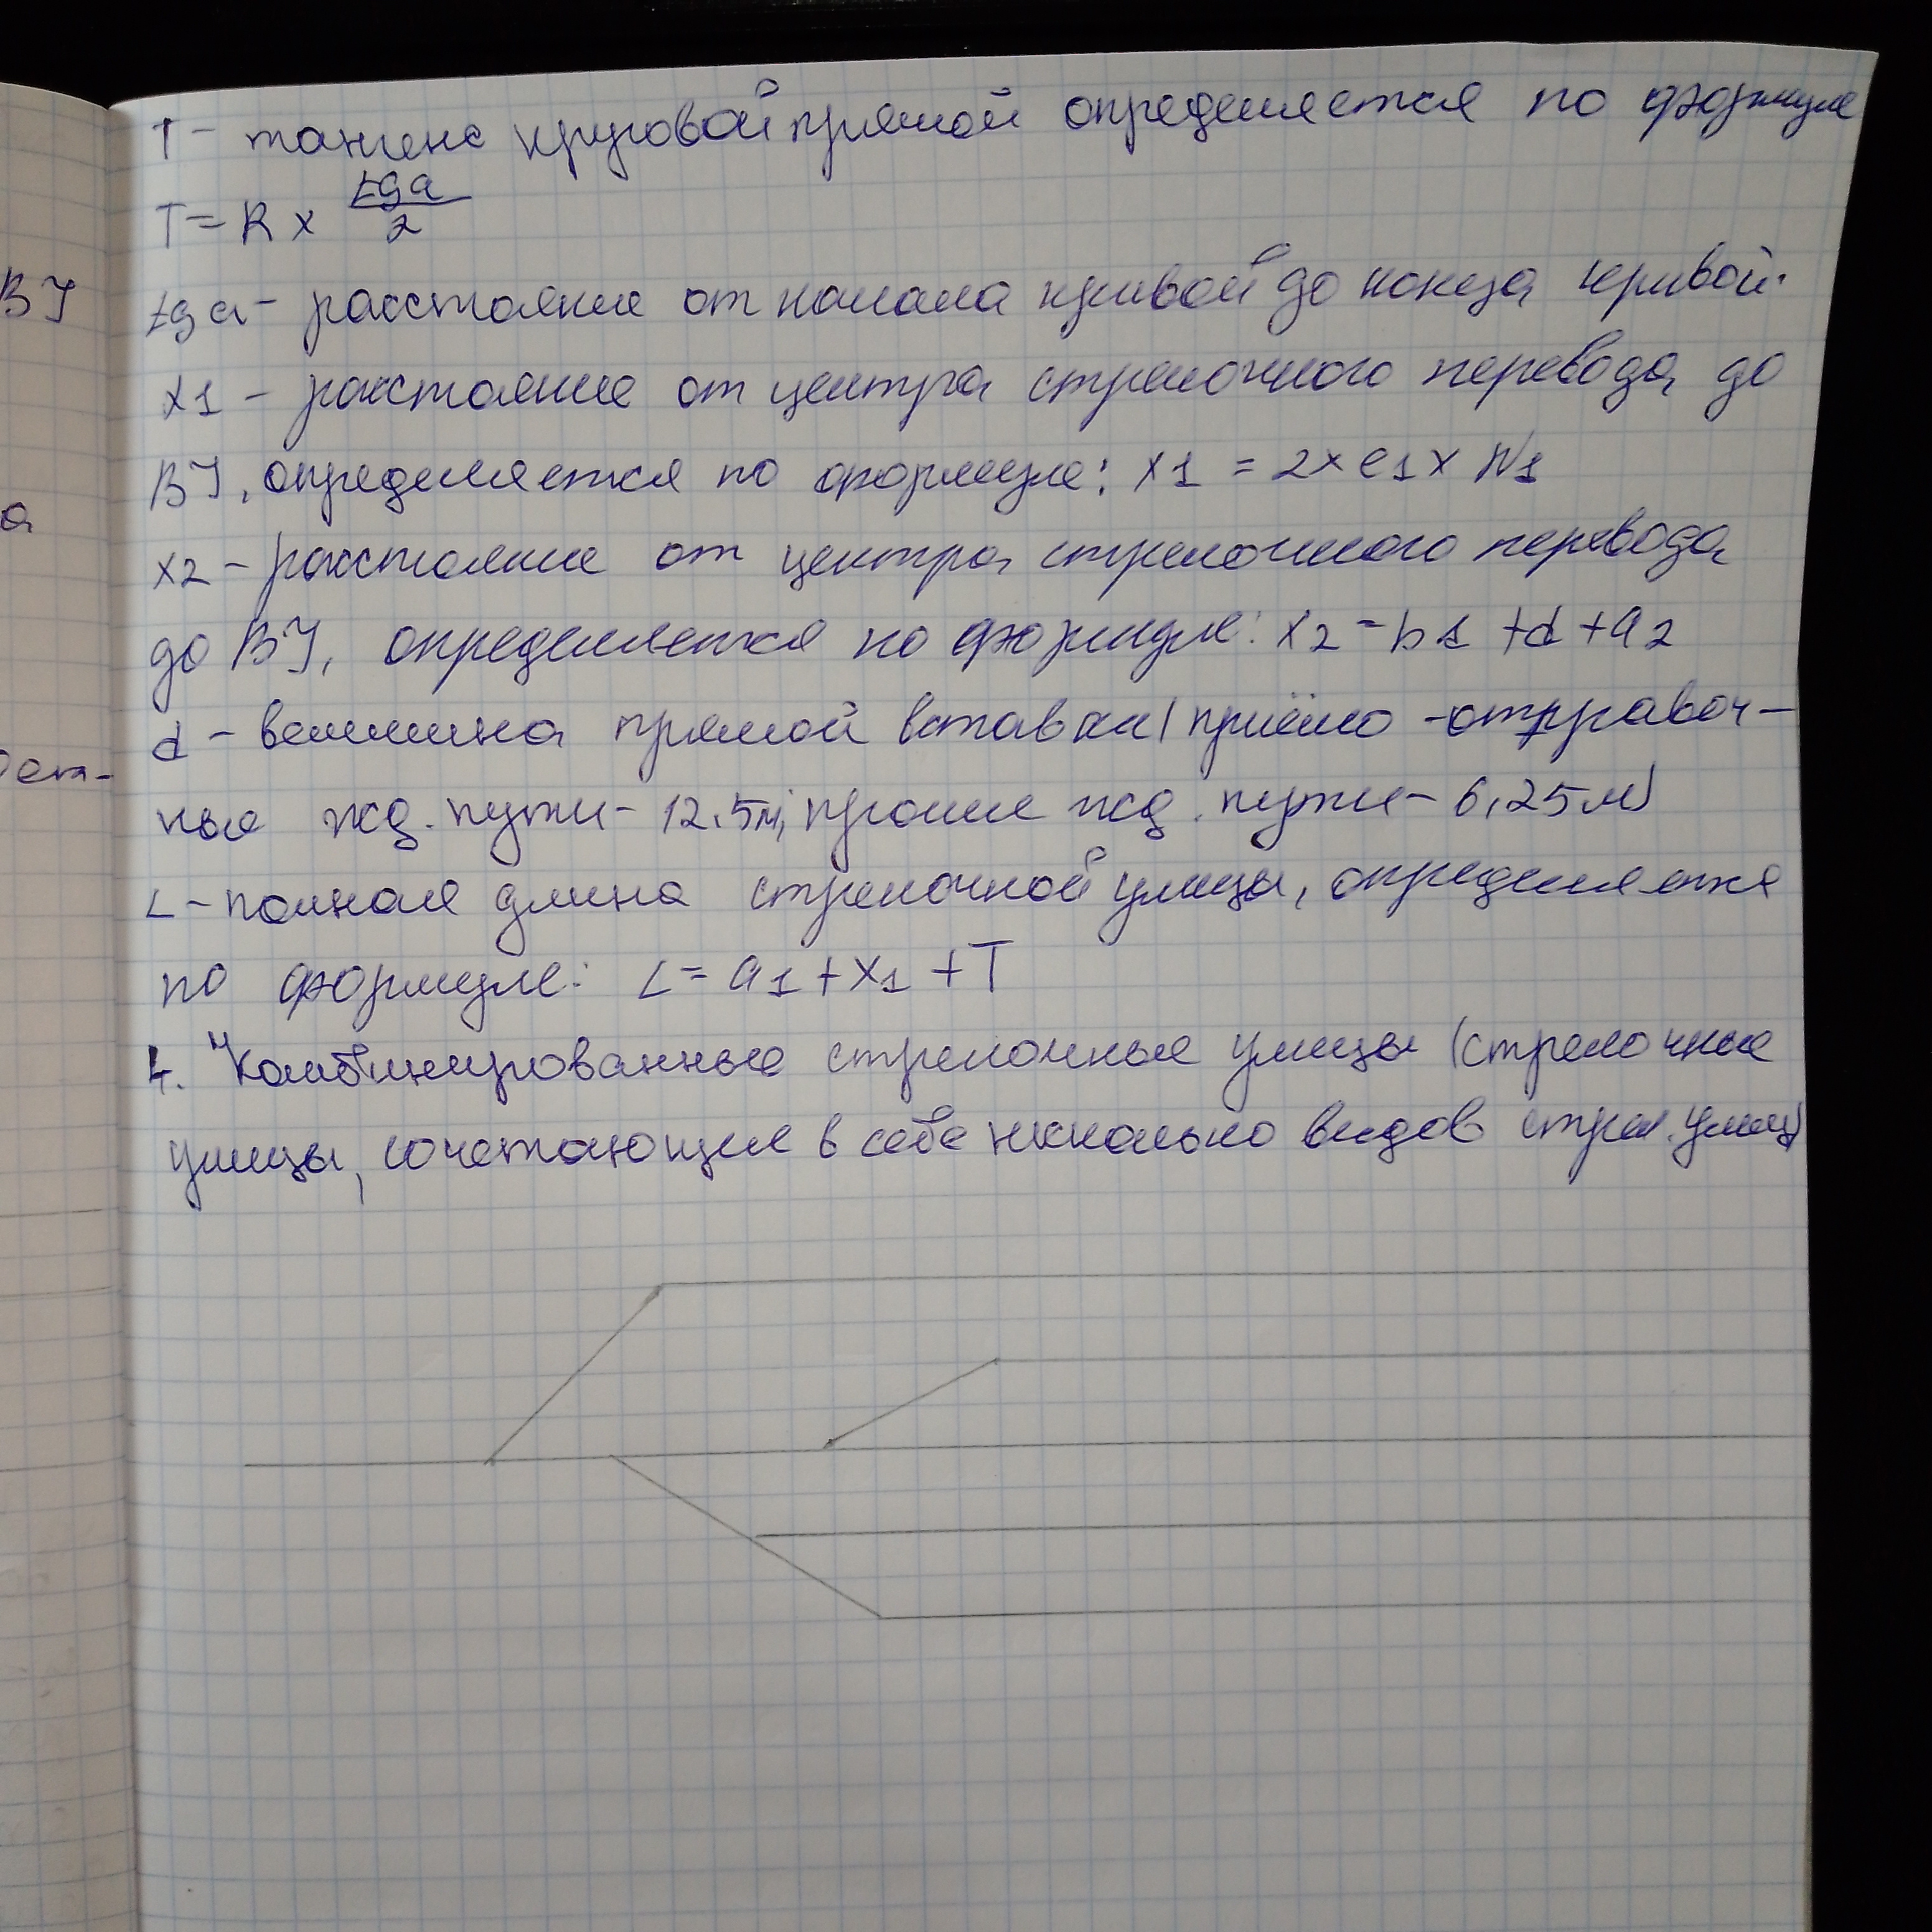 Т - тангенс круговой прямой определяется по формуле
T = R x tga/2
tga - расстояние от начала кривой до конца кривой.
x1 - расстояние от центра стрелочного перевода до
ВУ, определяется по формуле: x1 = 2xe1x N1
x2 - расстояние от центра стрелочного перевода
до ВУ, определяется по формуле: x2 = b1 + d + a2
d - величина прямой вставки (приёмо-отправоч-
ные жд. пути - 12.5м; прочие жд. пути - 6,25м)
L - полная длина стрелочной улицы, определяется
по формуле: L = a1 + x1 + T
4. Комбинированные стрелочные улицы (стрелочные
улицы, сочетающие в себе несколько видов стрел. улиц)
ВУ
а